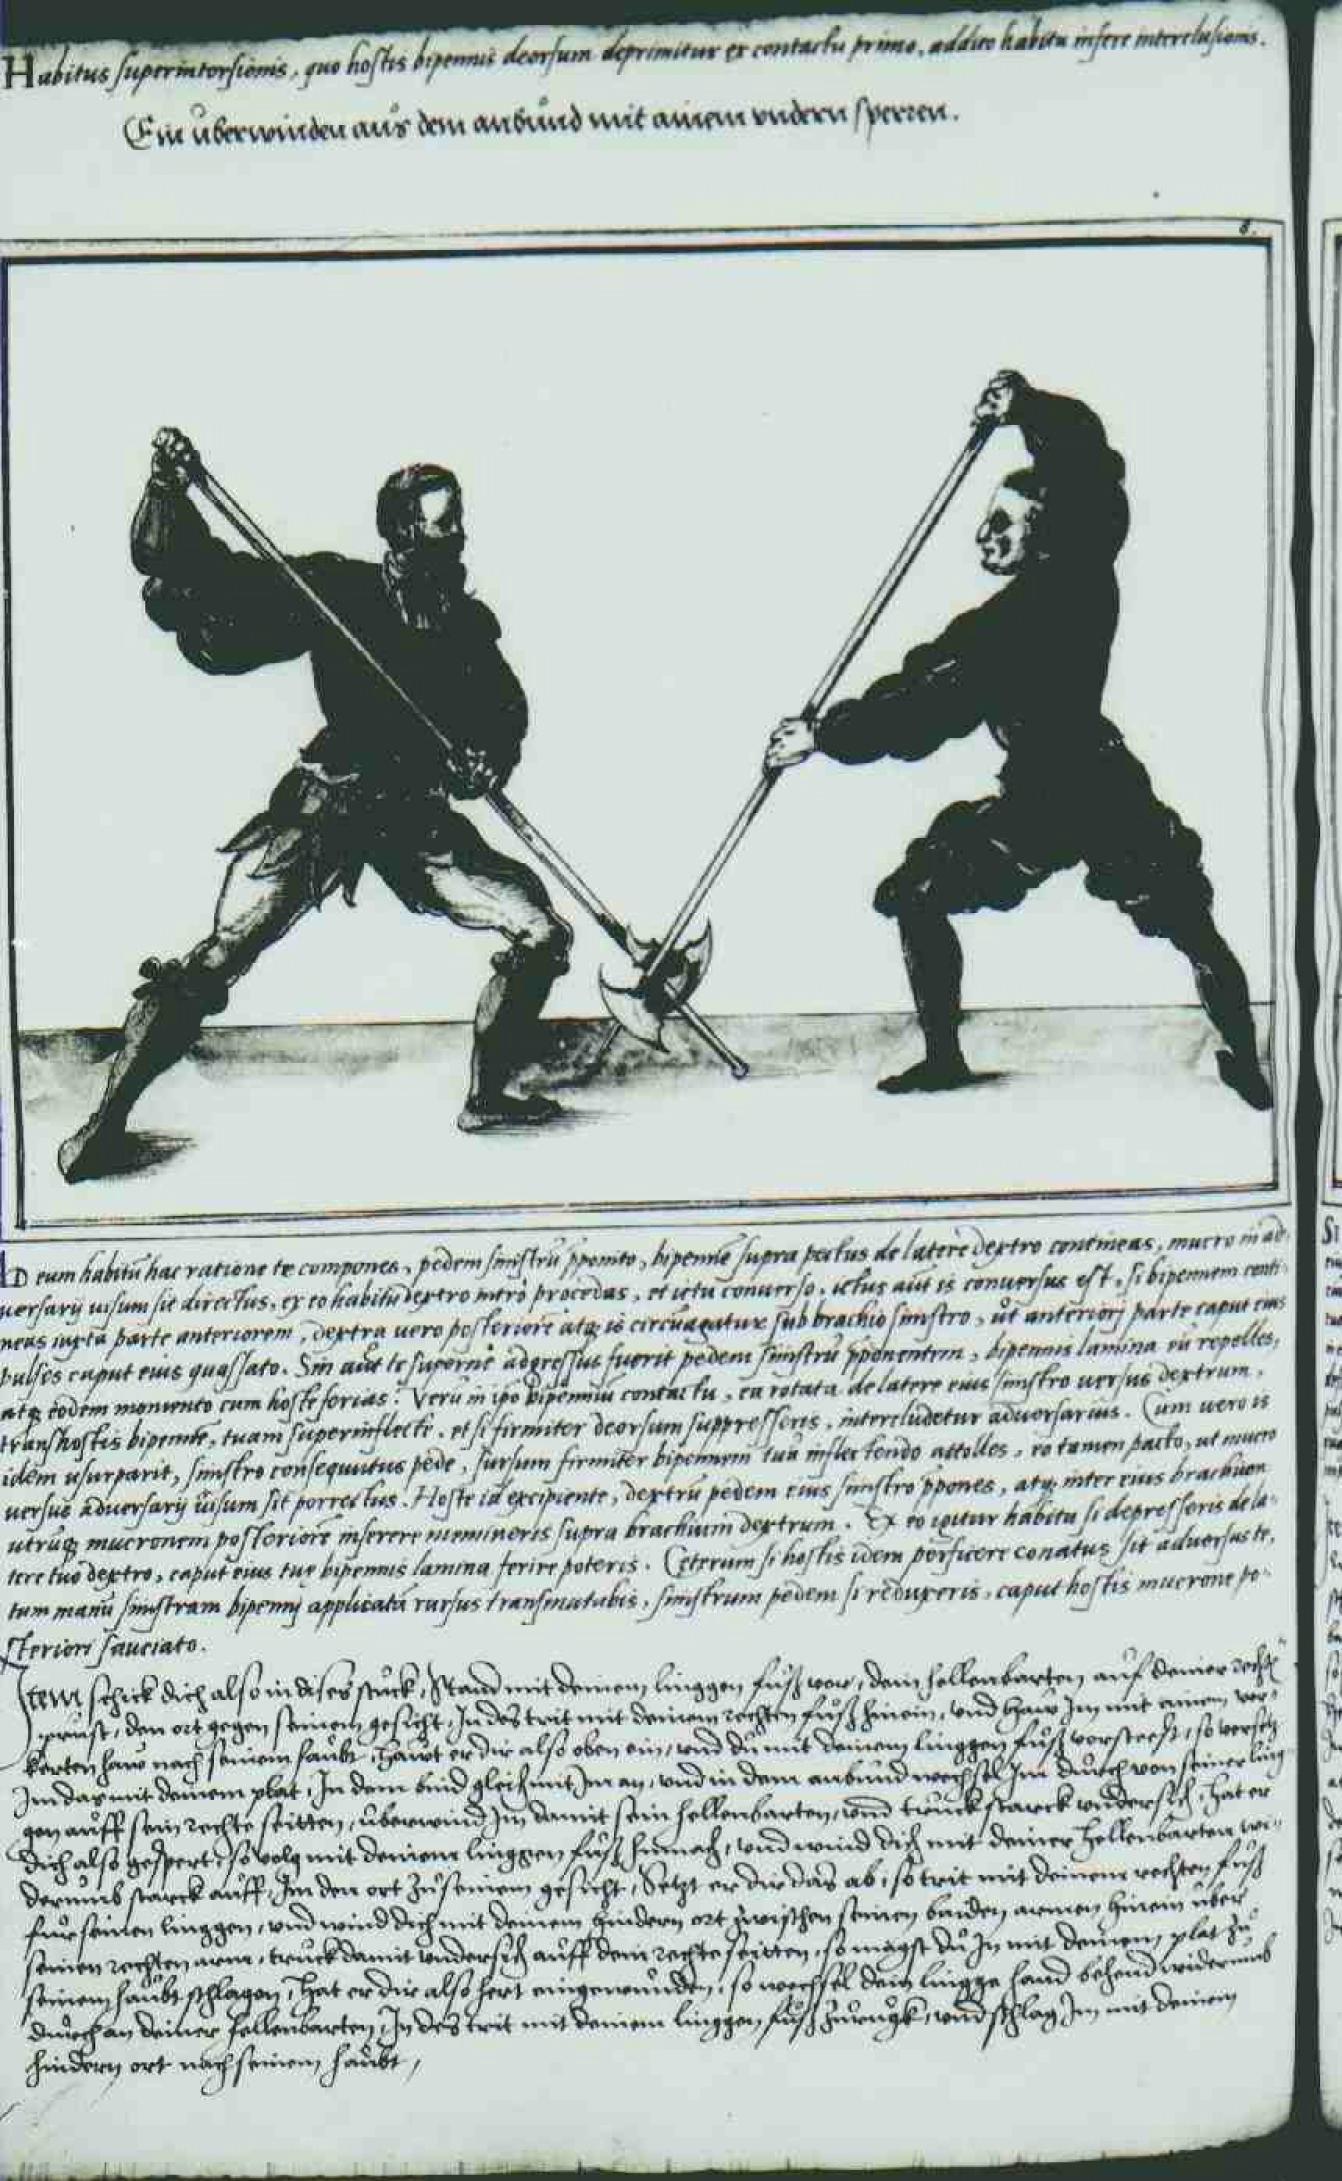 Habitus superintorsionis, quo hostis bipennis deorsum deprimitur ex contactu primo, addito habitu infere interclusionis.
Ein überwinden aus dem anbund mit ainem undern sperren.
8.
AD eum habitũ hac ratione te compones, pedem sinistrũ pponito, bipennẽ supra pectus de latere dextro contineas, mucro in ad-
versarij visum sit directus, ex eo habitu dextro intro procedas, et ictu converso, ictus aũt is conversus est, si bipennem conti-
neas iuxta parte anteriorem, dextra vero posteriorẽ atq̃ is circũagatur sub brachio sinistro, ut anteriorj parte caput eius
pulses caput eius quassato. Sin aũt te supernè adgressus fuerit pedem sinistrũ pponentem, bipennis lamina eũ repelles,
atq̃ eodem momento cum hoste ferias. Verũ in ipo bipenniũ contactu, ea rotata de latere eius sinistro versus dextrum,
trans hostis bipennẽ, tuam superinflecte, et si firmiter deorsum suppresseris, intercludetur adversarius. Cum vero is
idem usurparit, sinistro consequutus pede, sursum firmiter bipennem tuã inflectendo attolles, eo tamen pacto, ut mucro
versus adversarij visum sit porrectus. Hoste id excipiente, dextrũ pedem eius sinistro ppones, atq̃ inter eius brachium
utrũq̃ mucronem posteriorẽ inserere memineris supra brachium dextrum. Ex eo igitur habitu si depresseris de la-
tere tuo dextro, caput eius tuę bipennis lamina ferire poteris. Ceterum si hostis idem perficere conatus sit adversus te,
tum manũ sinistram bipennj applicatã rursus transmutabis, sinistrum pedem si reduxeris, caput hostis mucrone po-
steriori sauciato.
Item schick dich also in dises stuck, Stand mit deinem linggen fuß vor, dein hellenbarten auf deiner rechtẽ
prust, den ort gegen seinem gesicht, In des trit mit deinem rechten fuß hinein, und haw Im mit einem ver-
kerten haw nach seinem haubt, hawt er dir also oben ein, und du mit deinem linggen fuß vorsteest, so versetz
Im das mit deinem plat, In dem bind gleich mit Im an, und in dem anbund wechsel Im durch von seiner ling-
gen auff sein rechte seitten, überwind Im damit sein hellenbarten, und truck starck undersich, hat er
dich also gespert, so volg mit deinem linggen fuß hinnach, und wind dich mit deiner hellenbarten wi-
derumb starck auff, Im den ort zu seinem gesicht, Setzt er dir das ab, so trit mit deinem rechten fuß
für seinen linggen, und wind dich mit deinem hindern ort zwischen seinen baiden armen hinein über
seinen rechten arm, truck damit undersich auff dein rechte seitten, so magst du In mit deinem plat zu
seinem haubt schlagen, Hat er dir also hert eingewunden, so wechsel dein lingge hand behend widerumb
durch an deiner hellenbarten, In des trit mit deinem linggen fuß zurugk, und schlag Im mit deinem
hindern ort nach seinem haubt,